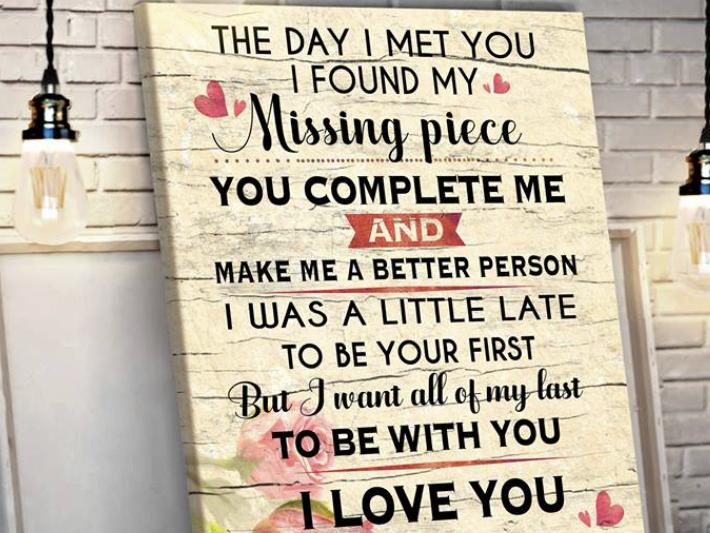 THE DAY I MET YOU
I FOUND MY
Missing piece
YOU COMPLETE ME
AND
MAKE ME A BETTER PERSON
I WAS A LITTLE LATE
TO BE YOUR FIRST
But I want all of my last
TO BE WITH YOU
I LOVE YOU